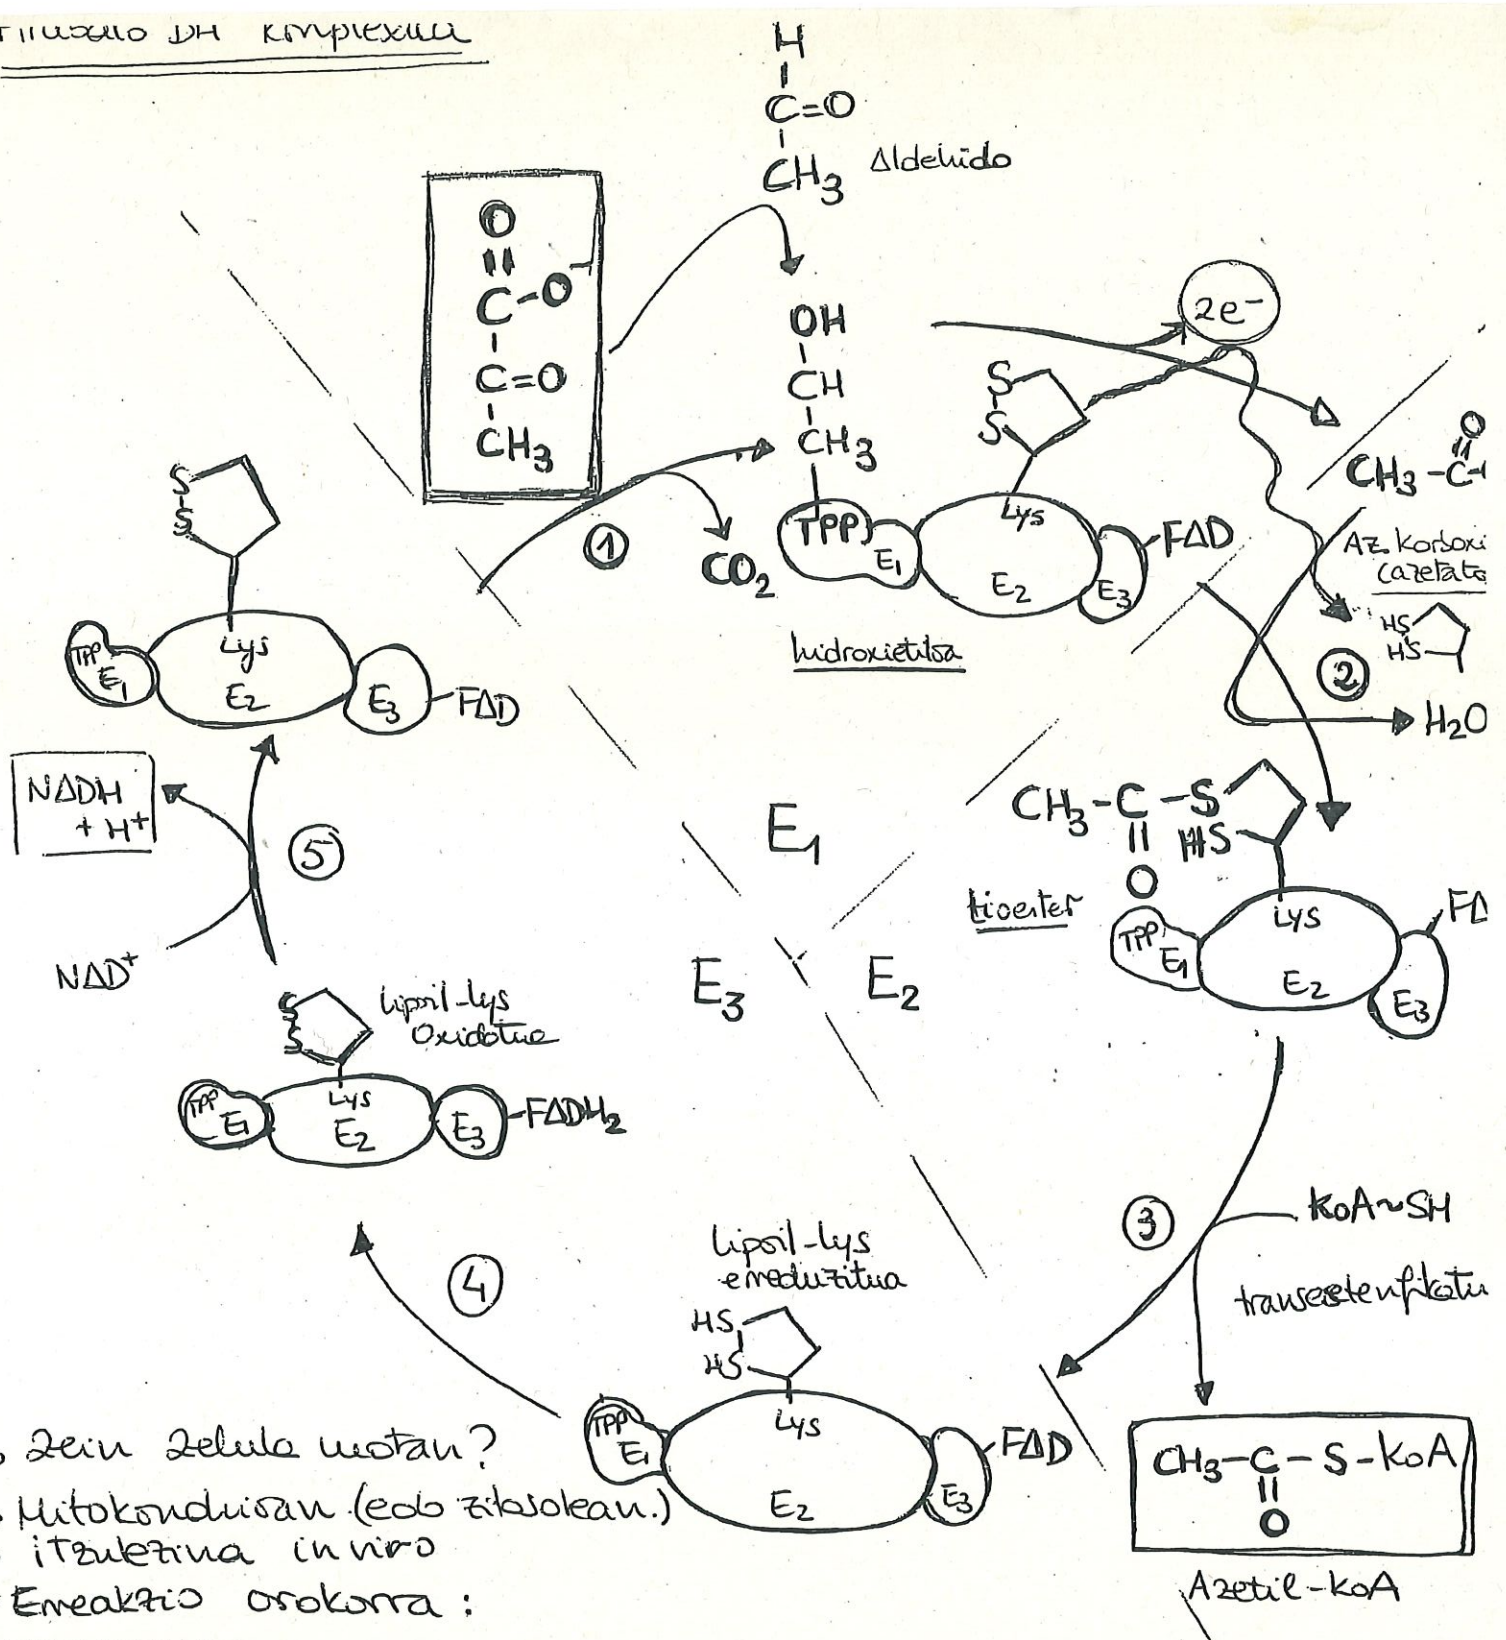 DH Konplexua
H
C=O
CH3 Aldehido
O
C-O-
C=O
CH3
OH
CH
CH3
2e-
S
S
CO2
1
TPP E1
Lys
E2
E3
FAD
hidroxietiloa
O
CH3-C-
Az. Karboxi
(azetato
HS
HS
2
H2O
S
S
TPP E1
Lys
E2
E3
FAD
NADH
+ H+
5
NAD+
E1
E3
E2
CH3-C-S
O
HS
tioester
TPP E1
Lys
E2
E3
FA
S
S
Lipoil-Lys
Oxidatua
TPP E1
Lys
E2
E3
FADH2
4
3
KoA~SH
transesterifikatu
Lipoil-Lys
erreduzitua
HS
HS
TPP E1
Lys
E2
E3
FAD
CH3-C-S-KoA
O
Azetil-KoA
zein zelula motan?
Mitokondrioan (edo zitosolean.)
itzulezina in vivo
Erreakzio orokorra :